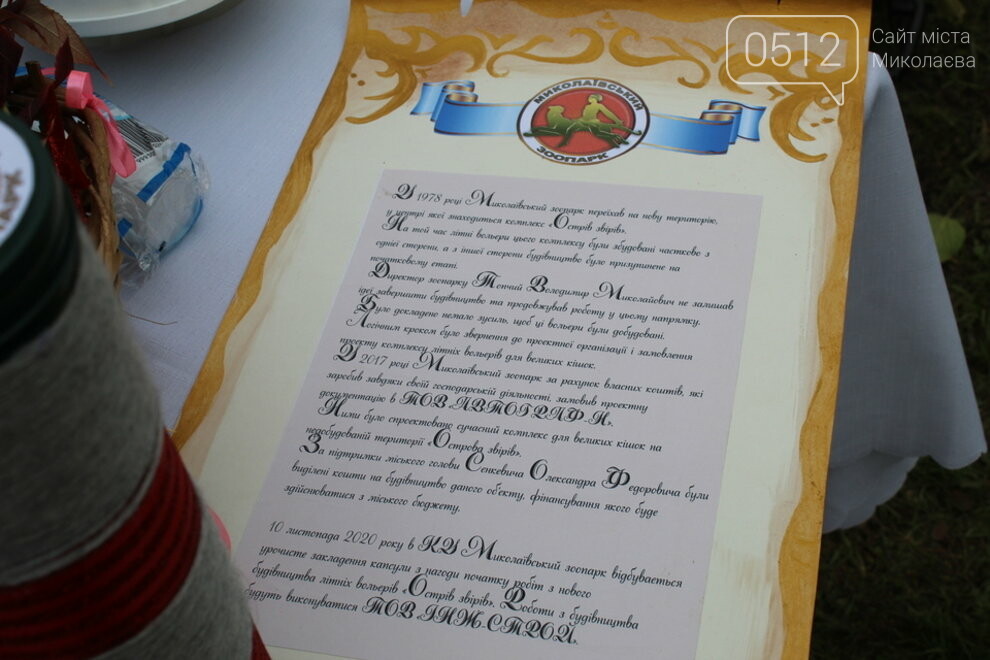 0512
Сайт міста
Миколаєва
МИКОЛАЇВСЬКИЙ
ЗООПАРК
У 1978 році Миколаївський зоопарк переїхав на нову територію,
у центрі якої знаходиться комплекс «Острів звірів».
На той час літні вольєри цього комплексу були збудовані частково з
однієї сторони, а з іншої сторони будівництво було призупинене на
початковому етапі.
Директор зоопарку Топчий Володимир Миколайович не залишав
ідеї завершити будівництво та продовжував роботу у цьому напрямку.
Було докладено немало зусиль, щоб ці вольєри були добудовані.
Логічним кроком було звернення до проектної організації і замовлення
проекту комплексу літніх вольєрів для великих кішок.
У 2017 році Миколаївський зоопарк за рахунок власних коштів, які
заробив завдяки своїй господарській діяльності, замовив проектну
документацію в ТОВ «АВТОГРАФ-Н».
Ними було спроектовано сучасний комплекс для великих кішок на
недобудованій території «Острова звірів».
За підтримки міського голови Сенкевича Олександра Федоровича були
виділені кошти на будівництво даного об'єкту, фінансування якого буде
здійснюватися з міського бюджету.
10 листопада 2020 року в КУ Миколаївський зоопарк відбувається
урочисте закладення капсули з нагоди початку робіт з нового
будівництва літніх вольєрів «Острів звірів». Роботи з будівництва
будуть виконуватися ТОВ «ІНЖ.СТРОЙ».